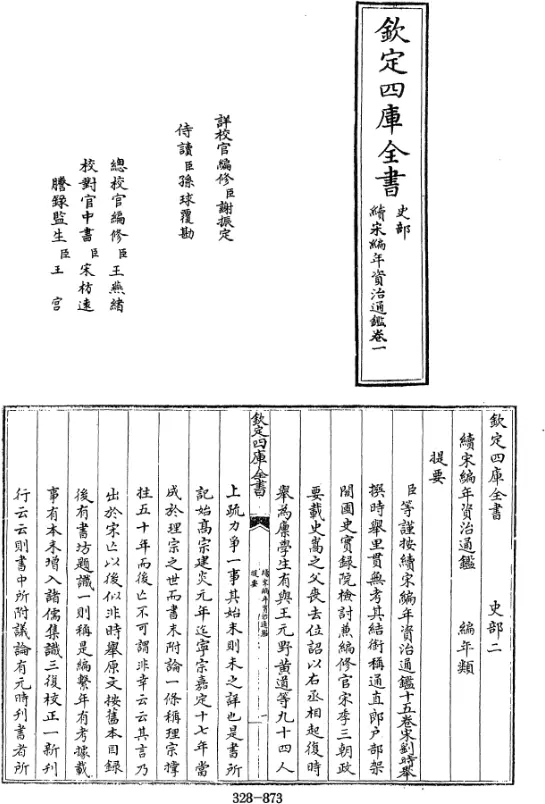 欽定四庫全書
史部
續宋編年資治通鑑卷一
詳校官編修臣謝振定
侍讀臣孫球覆勘
總校官編修臣王燕緒
校對官中書臣宋枋遠
謄錄監生臣王宮
欽定四庫全書
史部二
續宋編年資治通鑑
編年類
提要
臣等謹按續宋編年資治通鑑十五卷宋劉時舉
撰時舉里貫無考其結銜稱通直郎戶部架
閣國史實錄院檢討兼編修官宋季三朝政
要載史嵩之父喪去位詔以右丞相起復時
舉為廩學生有與王元野黃道等九十四人
欽定四庫全書
續宋編年資治通鑑
提要
一
上疏力爭一事其始末則未之詳也是書所
記始高宗建炎元年迄寧宗嘉定十七年當
成於理宗之世而書末附論一條稱理宗撐
拄五十年而後亡不可謂非幸云云其言乃
出於宋亡以後似非時舉原文按舊本目錄
後有書坊題識一則稱是編繫年有考據載
事有本末增入諸儒集議三復校正一新刊
行云云則書中所附議論有元時刊書者所
328-873